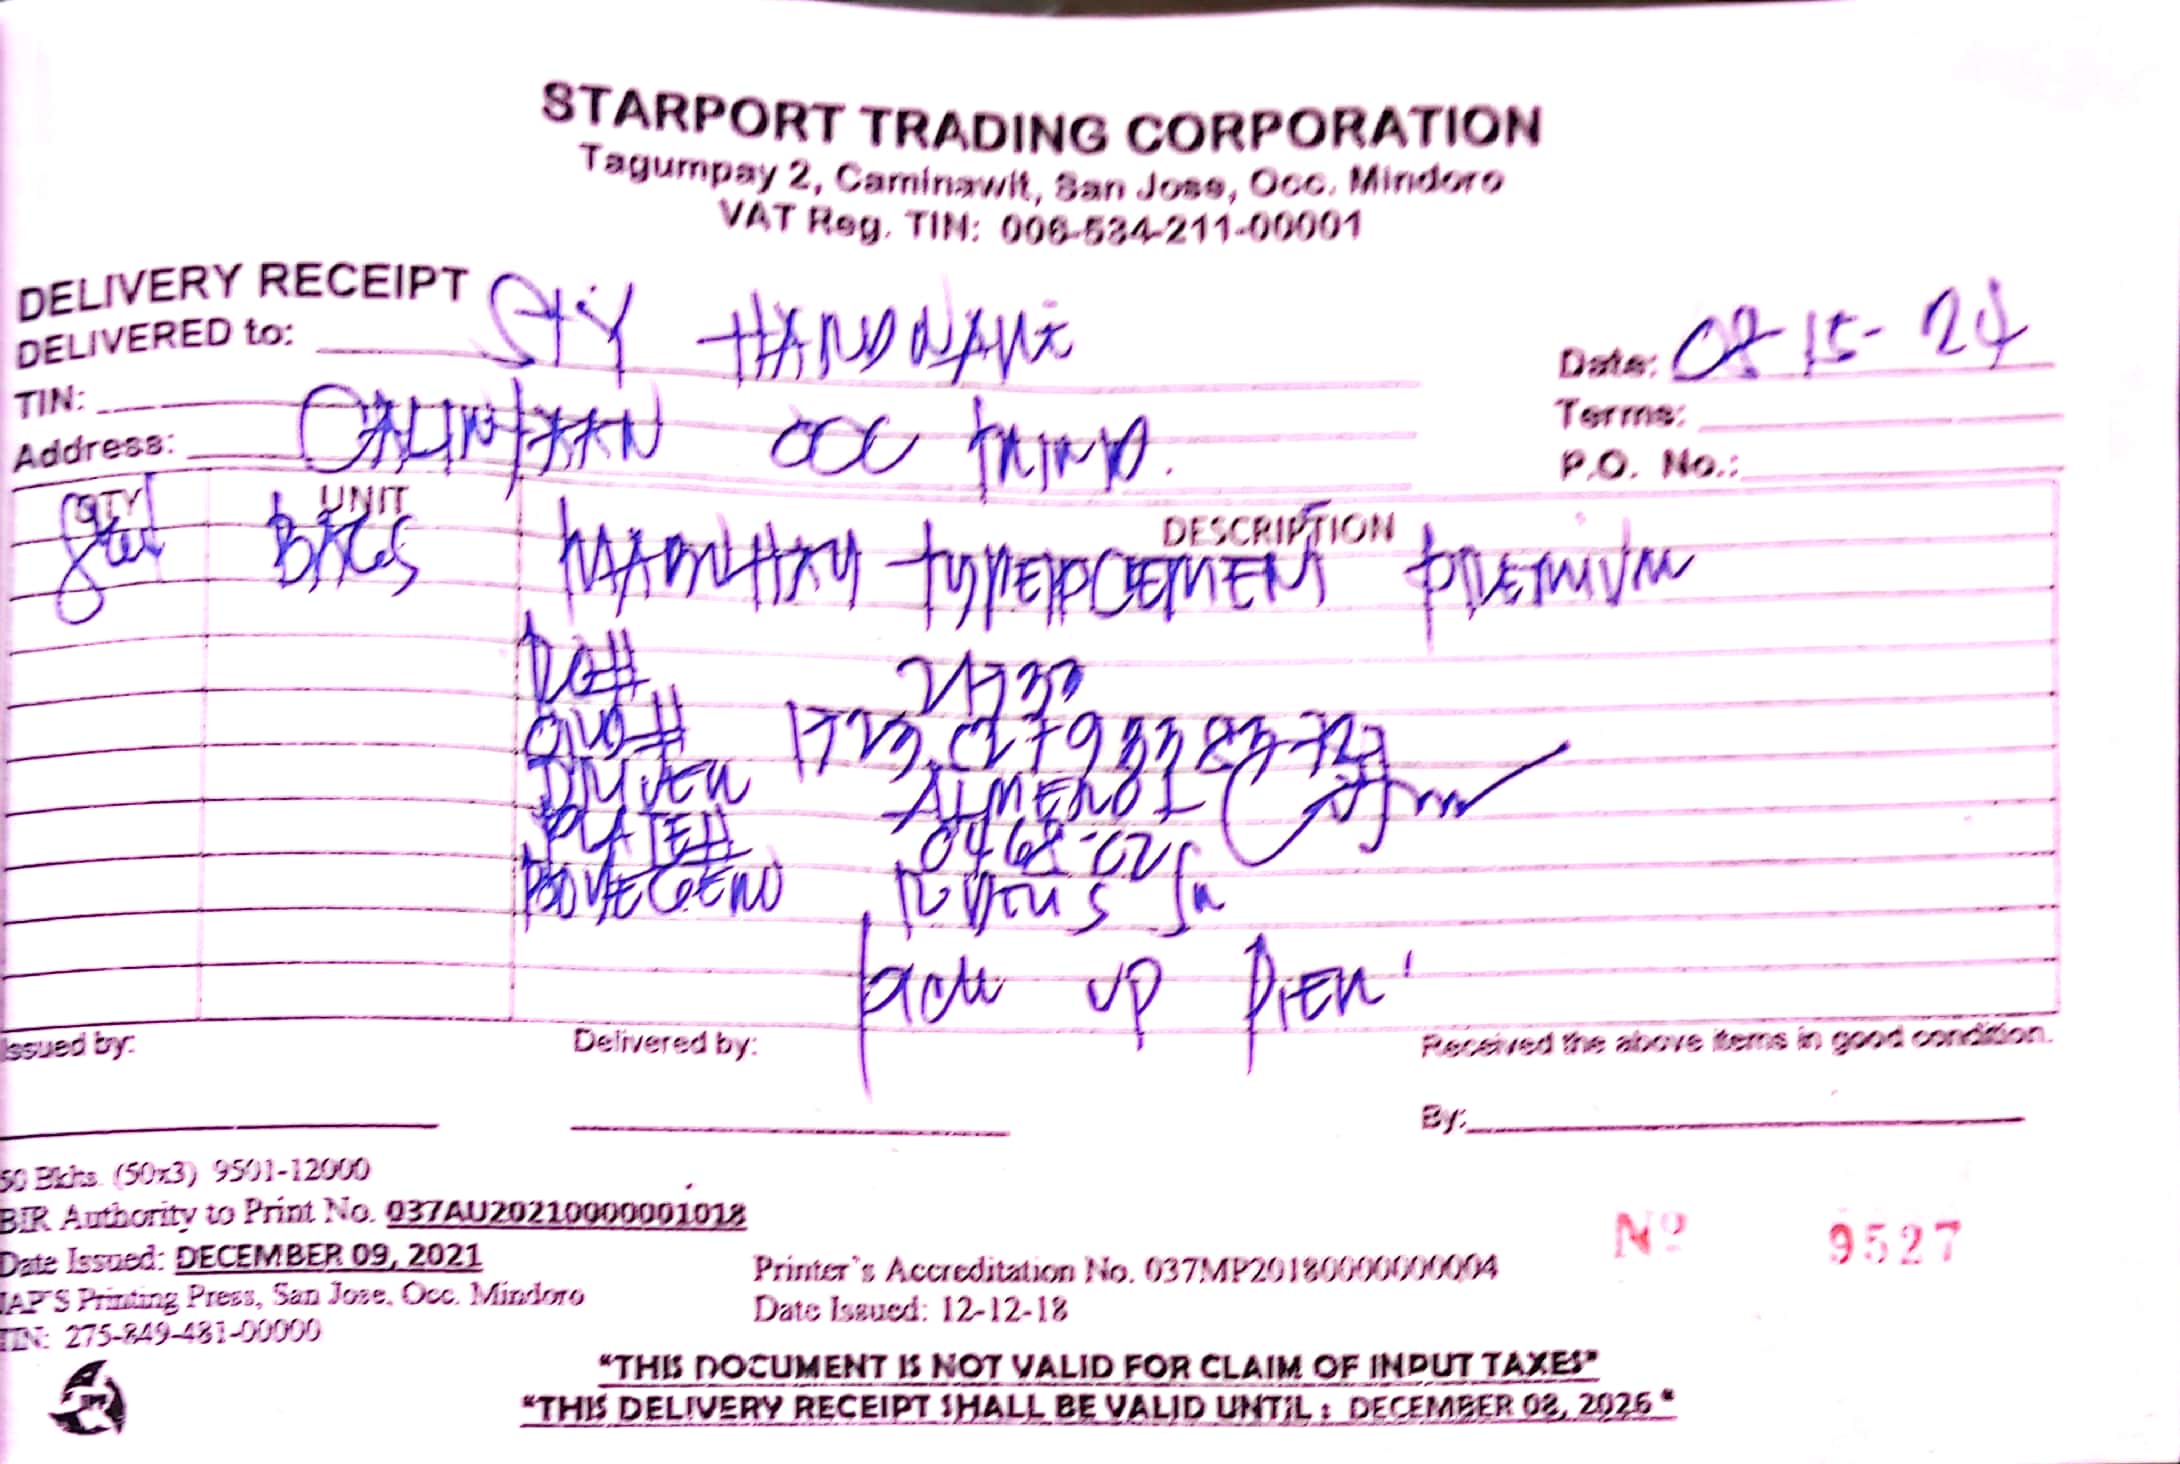 STARPORT TRADING CORPORATION
Tagumpay 2, Caminawit, San Jose, Occ. Mindoro
VAT Reg. TIN: 006-534-211-00001
DELIVERY RECEIPT
DELIVERED to: HARDWARE
Date: 08-15-24
TIN:
Terms:
Address: CALINTAAN OCC MIND.
P.O. No.:
QTY UNIT DESCRIPTION
BAGS MABUHAY CEMENT PREMIUM
DRIVER
PLATE# 0468-02
pick up PIER
Issued by:
Delivered by:
Received the above items in good condition.
By:
50 Bkhs. (50x3) 9501-12000
BIR Authority to Print No. 037AU20210000001018
Date Issued: DECEMBER 09, 2021
JAP'S Printing Press, San Jose, Occ. Mindoro
TIN: 275-849-481-00000
Printer's Accreditation No. 037MP20180000000004
Date Issued: 12-12-18
Nº 9527
"THIS DOCUMENT IS NOT VALID FOR CLAIM OF INPUT TAXES"
"THIS DELIVERY RECEIPT SHALL BE VALID UNTIL : DECEMBER 08, 2026 "